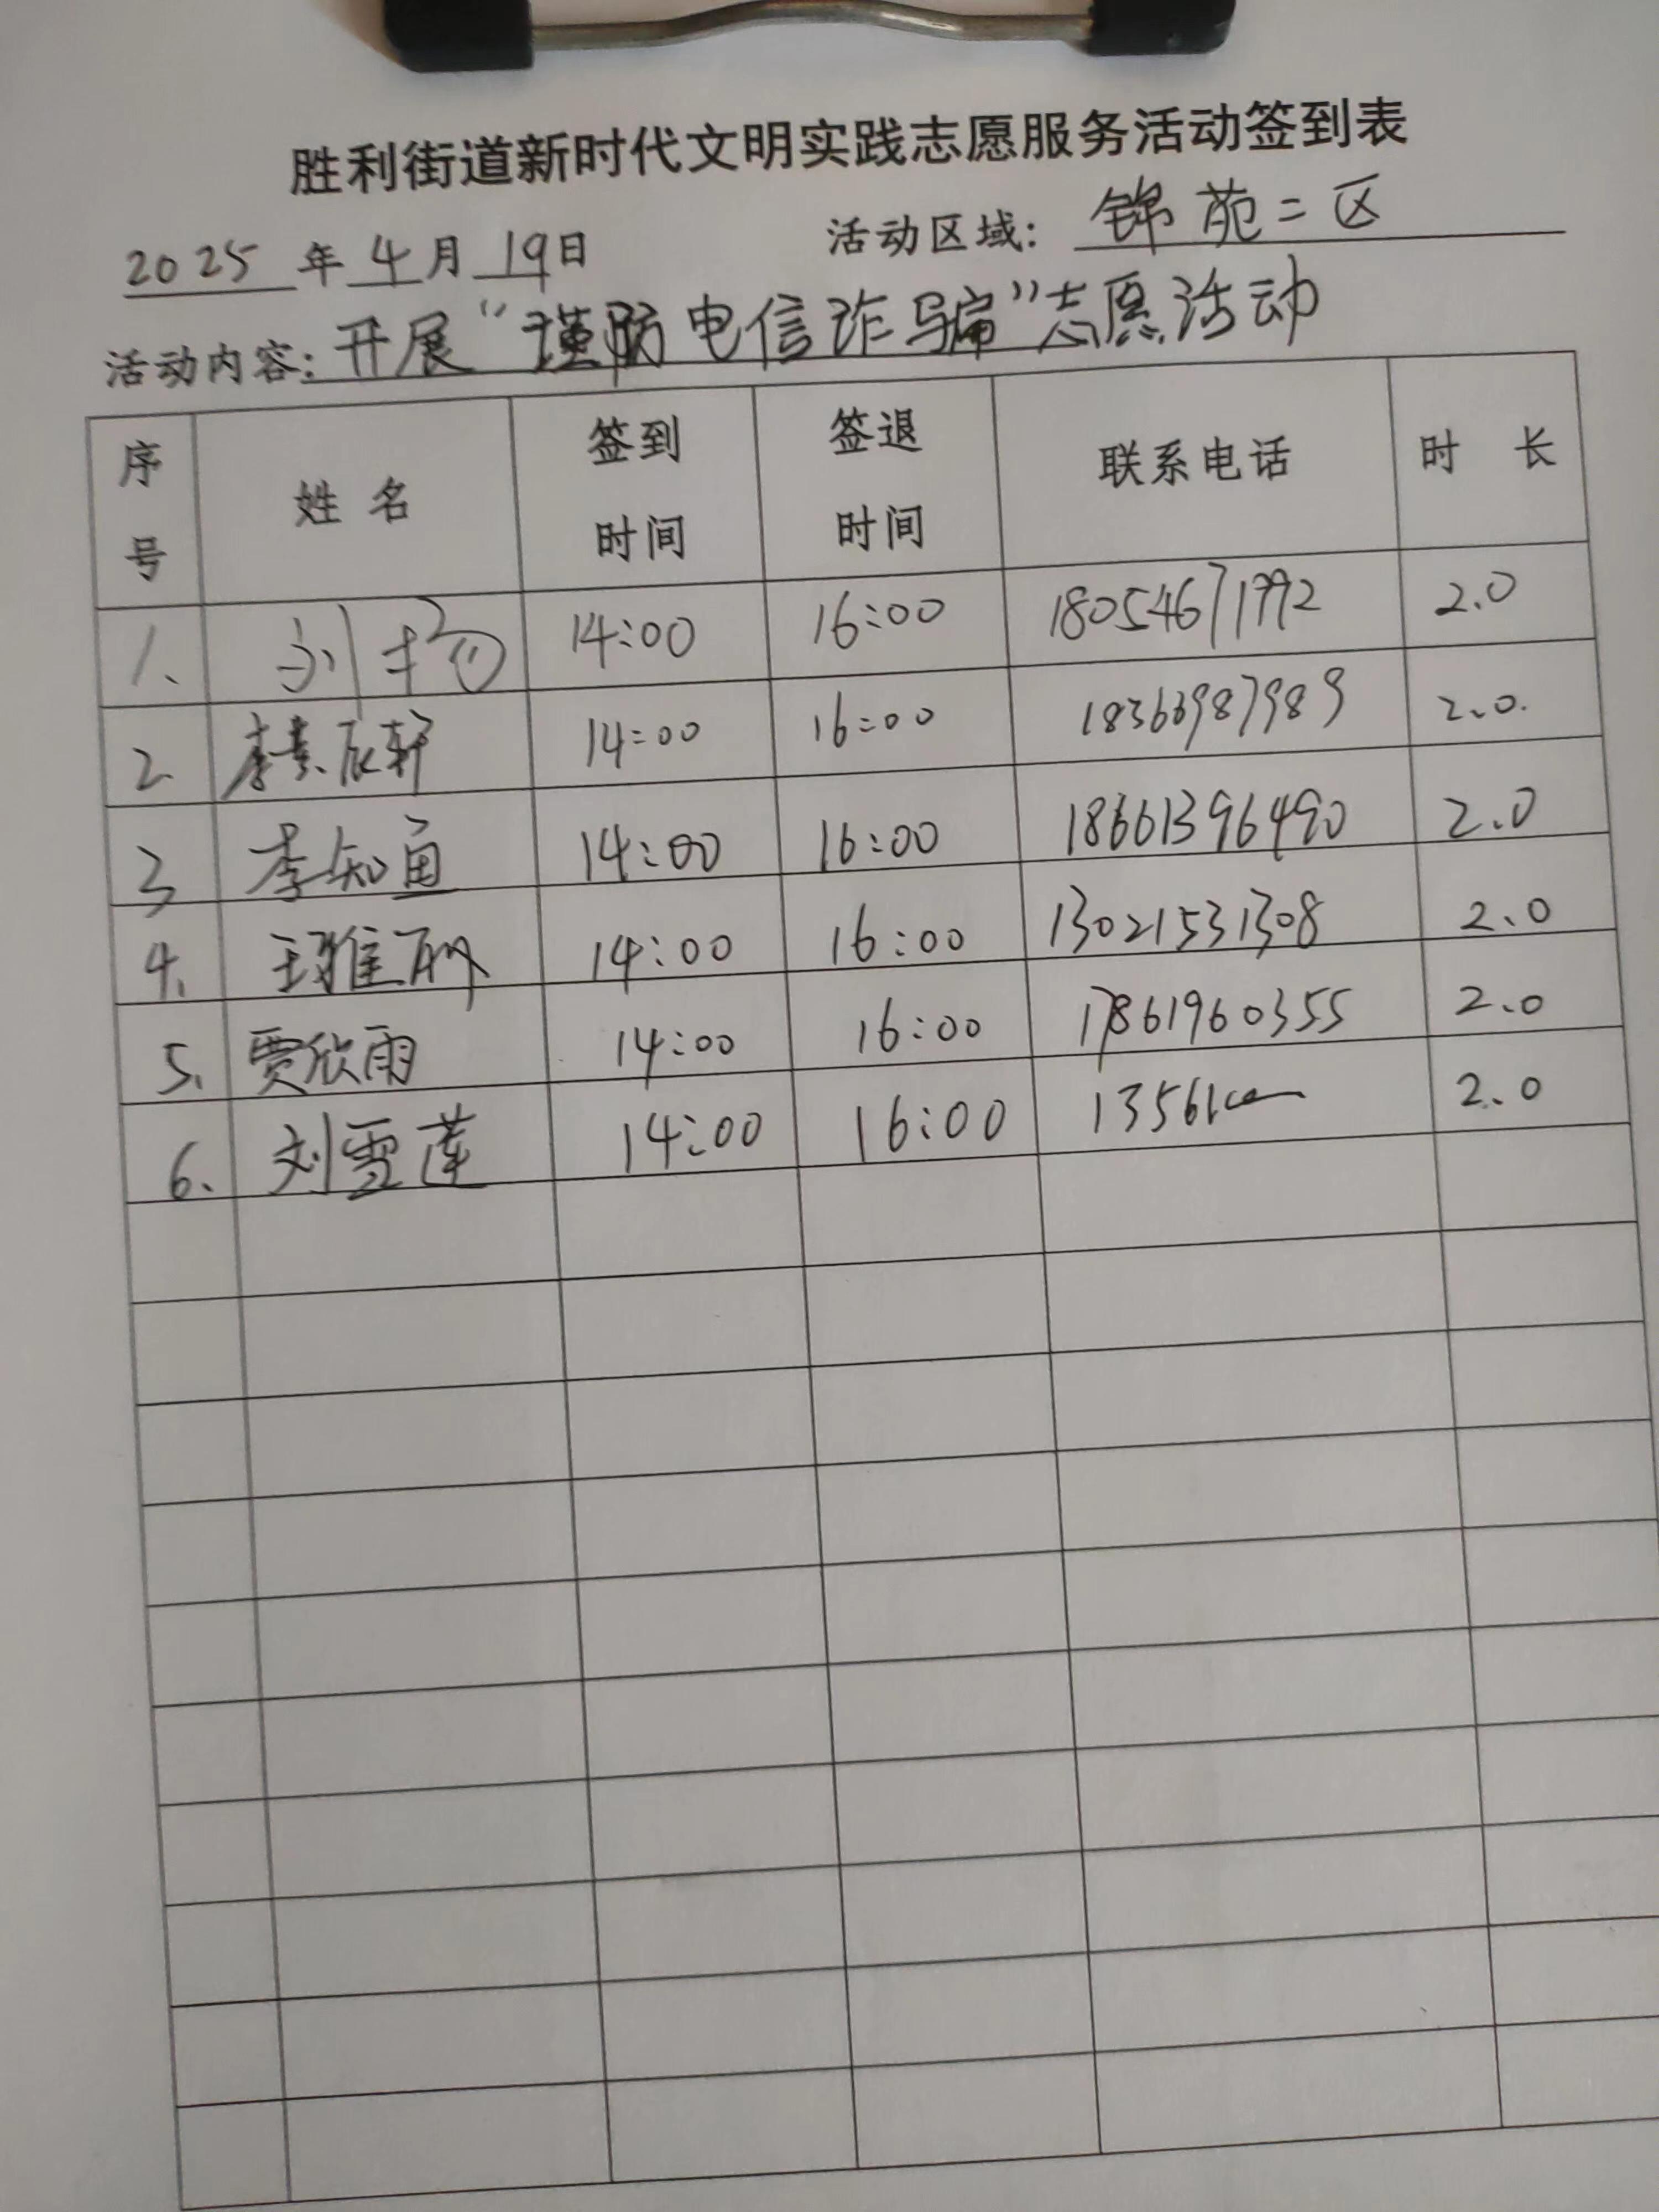 胜利街道新时代文明实践志愿服务活动签到表
2025 年 4 月 19日 活动区域: 锦苑二区
活动内容: 开展“谨防电信诈骗”志愿活动
序号 姓名 签到时间 签退时间 联系电话 时 长
1、 刘扬 14:00 16:00 18054671792 2.0
2 辰轩 14:00 16:00 18366987989 2.0.
3 李知逦 14:00 16:00 18661396490 2.0
4. 王雅丽 14:00 16:00 13021531308 2.0
5. 贾欣雨 14:00 16:00 17861960355 2.0
6、 刘雪莲 14:00 16:00 13561 2.0